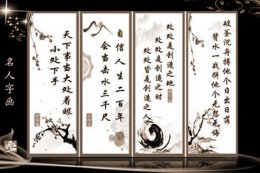 破釜沉舟搏他个日出日落
背水一战拼他个无怨无悔
处处是创造之地
处处是创造之时
自信人生二百年
会当击水三千尺
天下事当大处着眼
小处下手
名人字画